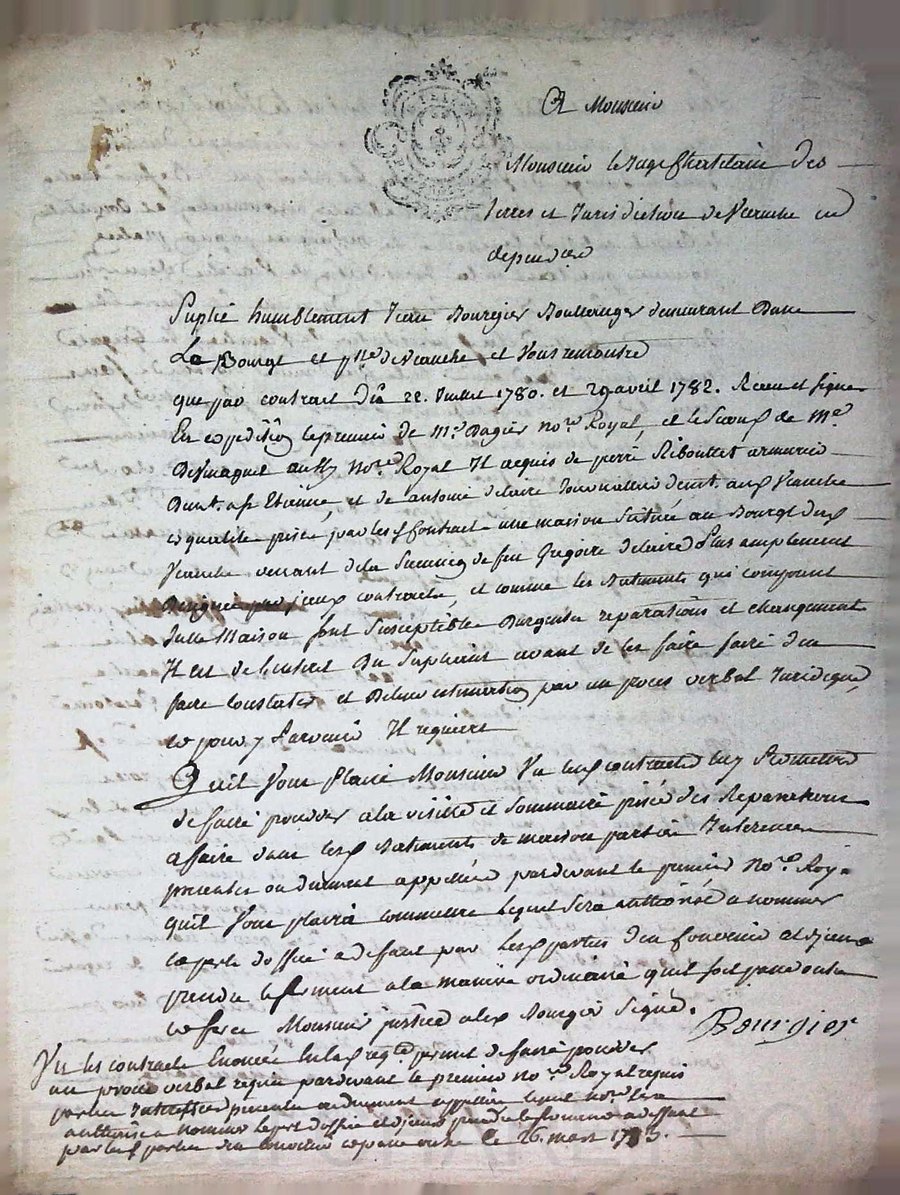 A Monsieur
Monsieur le Juge Chatelain des
terres et Jurisdiction de Veauche en
dependant
Suplie humblement Bourgier Boullanger demeurant Dans
Le Bourgt et psse de Veauche et Vous remontre
que par contrat du 22. Juillet 1780. et 29 avril 1782. Receu et signé
En expedition le premier de Me Dagier nore Royal, et le Second de Me
aussy nore Royal Il acquis de pierre Riboullet armurier
Dmt. a St Etienne, et de antoine delaire demt. aud Veauche
es qualités prises par lesd Contract une maison Située au Bourgt dud
Veauche venant de la Succession de feu Gregoire delaire plus amplement
Designée iceux contracts, et comme les Batiments qui composent
ditte Maison sont Susceptible Durgente reparations et changement
Il est de linteret Du Supliant avant de les faire faire den
faire Constater et estimation par un proces verbal Juridique,
ce pour y Parvenir Il requiert
Quil Vous Plaise Monsieur Vu lesd contracts luy Permettre
de faire proceder a la visitte et Sommaire prisée des Reparations
a faire dans lesd Batiments de maison parties Interessées
presentes ou dument appellées pardevant le premier nore Roy.
quil Vous plaira commettre lequel Sera authorisé a nommer
experts doffice a defaut par Lesd parties den Convenir et diceux
prendre le serment a la maniere ordinaire quil soit
ce fera Monsieur justice aled Bourgier Signé.
Bourgier
Vu les contracts Enoncés En lad reqte permis de faire proceder
au proces verbal requis pardevant le premier nore Royal requis
parties Interessées presentes ou dument appellées lequel nore sera
authorisé a nommer Expert doffice et diceux prendre le serment a deffaut
par lesd parties den convenir ce 26. mars 1783.